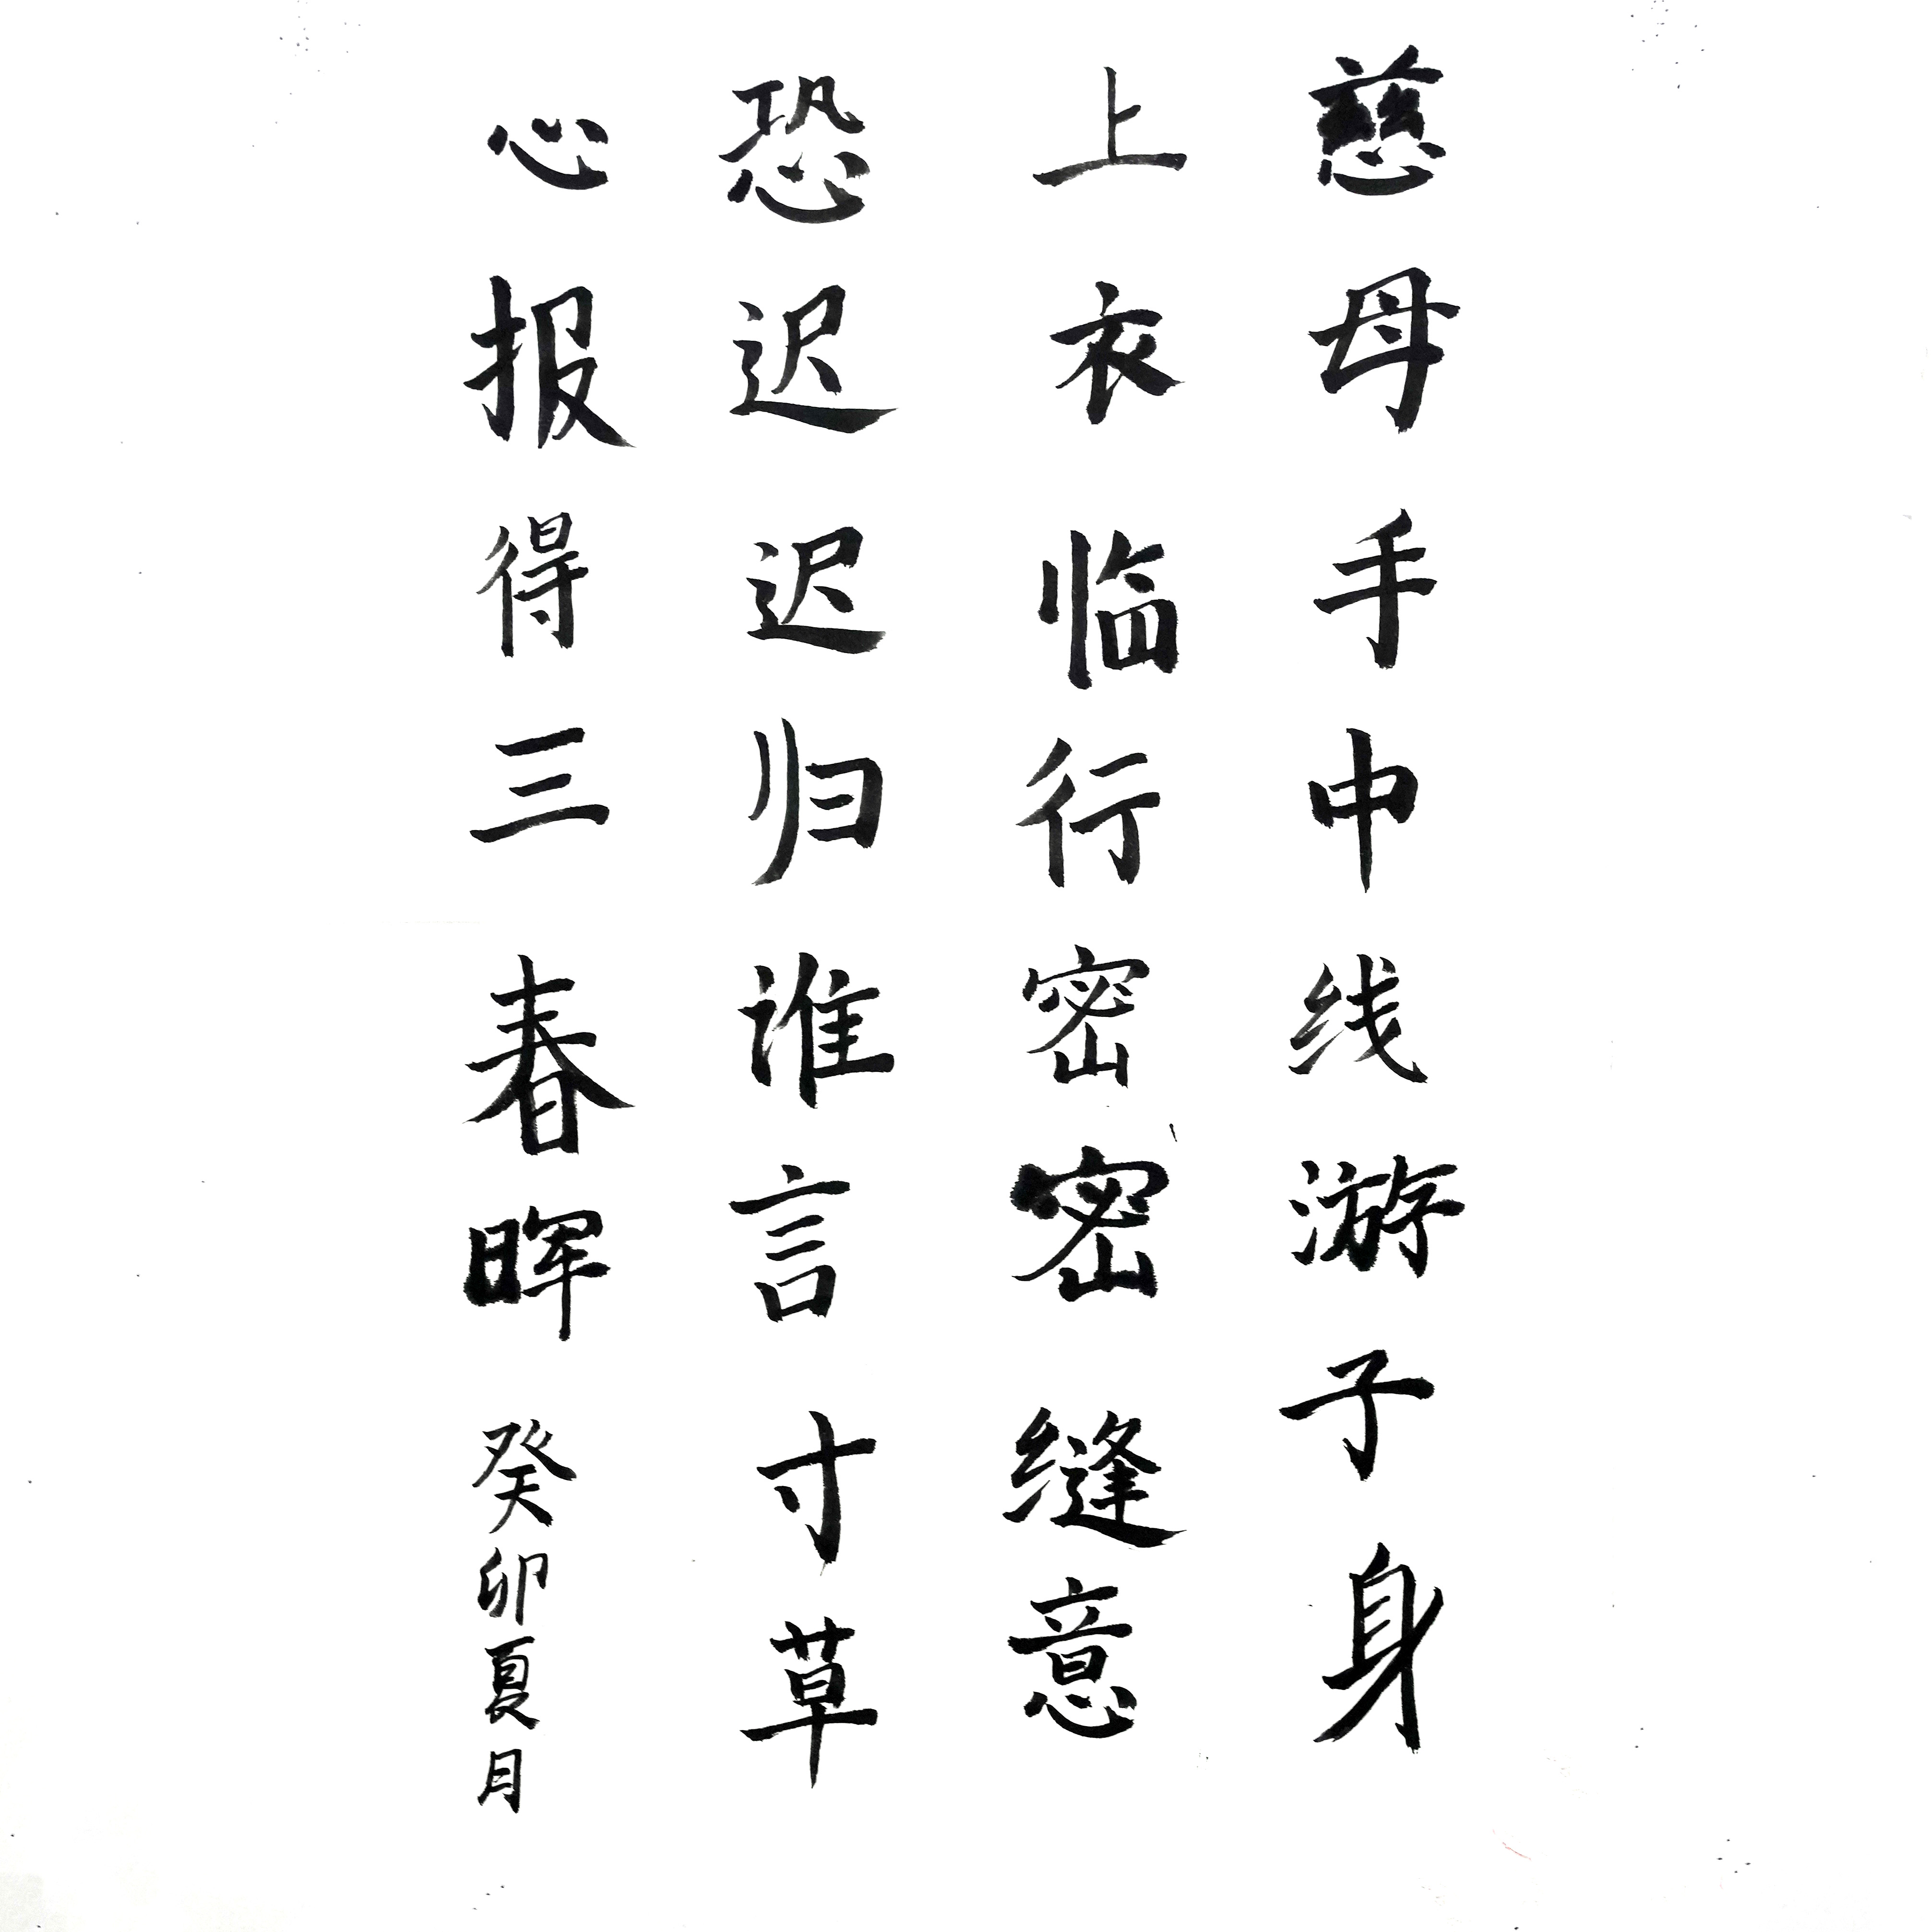 慈母手中线游子身
上衣临行密密缝意
恐迟迟归谁言寸草
心报得三春晖癸卯夏月